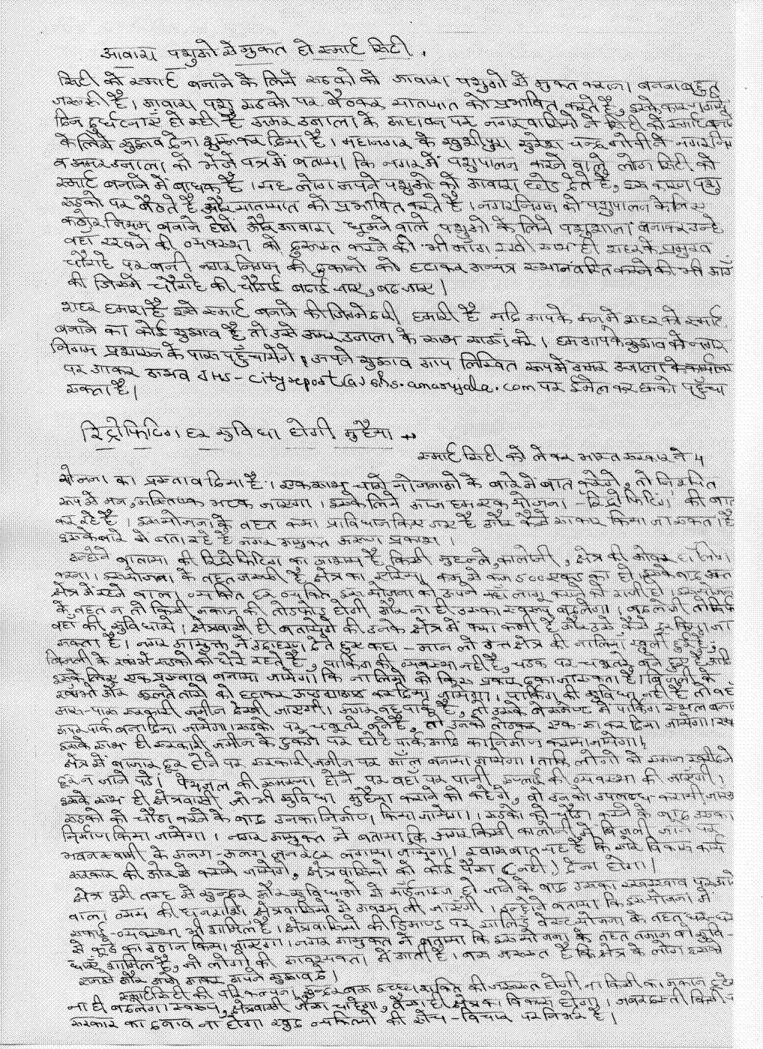 आवारा पशुओं से मुक्त हो स्मार्ट सिटी.
सिटी को स्मार्ट बनाने के लिये सड़कों को आवारा पशुओं से मुक्त कराना बहुत
जरूरी है। आवारा पशु सड़कों पर बैठकर यातायात को प्रभावित करते हैं, इसके कारण आये
दिन दुर्घटनाएं हो रही हैं अमर उजाला के आहवान पर नगरवासियों ने सिटी को स्मार्ट बनाने
के लिये सुझाव देना शुरू कर दिया है। महानगर के सुरेश चन्द्र ने नगर निगम
व अमर उजाला को भेजे पत्र में बताया कि नगर में पशुपालन करने वाले लोग सिटी को
स्मार्ट बनाने में बाधक हैं। यह लोग अपने पशुओं को आवारा छोड़ देते हैं, इस कारण पशु
सड़कों पर बैठते हैं और यातायात को प्रभावित करते हैं। नगर निगम को पशुपालन के लिए
कठोर नियम बनाने होंगे और आवारा घूमने वाले पशुओं के लिये पशुशाला बनाकर उन्हें
वहां रखने की व्यवस्था को दुरूस्त करने की भी मांग रखी साथ ही शहर के प्रमुख
चौराहे पर बनी नगर निगम की दुकानों को हटाकर अन्यत्र स्थानांतरित करने की भी मांग
की जिससे चौराहे की चौड़ाई बढ़ाई जाए, बढ़ जाए।
शहर हमारा है इसे स्मार्ट बनाने की जिम्मेदारी हमारी है यदि आपके मन में शहर को स्मार्ट
बनाने का कोई सुझाव है तो उसे अमर उजाला के साथ साझा करें। हम आपके सुझाव को नगर
निगम प्रशासन के पास पहुँचायेंगे। अपने सुझाव आप लिखित रूप में अमर उजाला के कार्यालय
पर आकर अथवा JHS-cityreport@jhs.amarujala.com पर ईमेल कर हमको पहुँचा
सकता है।
रिट्रोफिटिंग हर सुविधा होगी मुहैया →
स्मार्ट सिटी को लेकर भारत सरकार ने 4
योजना का प्रस्ताव दिया है। एक साथ चारों योजनाओं के बारे में बात करेंगे, तो निश्चित
रूप से मन, मस्तिष्क भटक जाएगा। इसके लिये आज हम एक योजना - रिट्रोफिटिंग की बात
कर रहे हैं। इस योजना के तहत क्या प्राविधान किए गए हैं और कैसे साकार किया जा सकता है
इसके बारे में बता रहे हैं नगर आयुक्त अरूण प्रकाश।
उन्होंने बताया की रिट्रोफिटिंग का आशय है किसी मुहल्ले, कालोनी, क्षेत्र की ओवर हालिंग
करना। इस योजना के तहत जरूरी है क्षेत्र का एरिया कम से कम 500 एकड़ का हो। इसके बाद उक्त
क्षेत्र में रहने वाला व्यक्ति इस योजना को अपने यहां लागू कराने को राजी हो। इस योजना
के तहत न तो किसी मकान की तोड़फोड़ होगी और ना ही उसका स्वरूप बदलेगा। बदलेगी तो सिर्फ
वहां की सुविधायें। क्षेत्रवासी ही बतायेंगे की उनके क्षेत्र में क्या कमी है और उसे कैसे दूर किया जा
सकता है। नगर आयुक्त ने उदाहरण देते हुए कहा - मान लो उक्त क्षेत्र की नालियां खुली हुई हैं,
बिजली के खम्भे सड़कों को घेरे रहते हैं, पार्किंग की व्यवस्था नहीं है, सड़क पर चबूतरे बने हुए हैं, आदि
इसके लिए एक प्रस्ताव बनाया जायेगा कि नालियों को किस प्रकार ढका जा सकता है। बिजली के
खम्भे और झूलते तारों को हटाकर अण्डरग्राउण्ड कर दिया जायेगा। पार्किंग की सुविधा नहीं है तो वहां
आस-पास सरकारी जमीन देखी जाएगी। अगर वह पार्क है, तो उसके बेसमेन्ट में पार्किंग स्थल बना
ऊपर पार्क बना दिया जायेगा। सड़कों पर चबूतरे बने हैं, तो उनको तोड़कर एक-सा कर दिया जायेगा।
इसके साथ ही सरकारी जमीन के टुकड़ों पर छोटे पार्क आदि का निर्माण कराया जायेगा।
क्षेत्र में बाजार दूर होने पर सरकारी जमीन पर मॉल बनाया जायेगा। ताकि लोगों को सामान खरीदने
दूर न जाने पड़े। पेयजल की समस्या होने पर वहाँ पर पानी सप्लाई की व्यवस्था की जाएगी।
इसके साथ ही क्षेत्रवासी जो भी सुविधा मुहैया कराने को कहेंगे, वो उनको उपलब्ध करायी जाएगी
सड़कों को चौड़ा करने के बाद उनका निर्माण किया जायेगा। सड़कों को चौड़ा करने के बाद उसका
निर्माण किया जायेगा। नगर आयुक्त ने बताया कि अगर किसी कालोनी में बिजली जाने पर
भवनस्वामी के अलग-अलग जनरेटर लगाया जायेगा। खास बात यह है कि सारे विकास कार्य
सरकार की ओर से कराये जायेंगे, क्षेत्रवासियों को कोई पैसा (नहीं) देना होगा।
क्षेत्र पूरी तरह से सुन्दर और सुविधाओं से मॉर्डनाइज हो जाने के बाद उसका रखरखाव पर आने
वाला व्यय की धनराशि क्षेत्रवासियों से अवश्य ली जाएगी। उन्होंने बताया कि इस योजना में
सफाई-व्यवस्था भी शामिल है। क्षेत्रवासियों की डिमाण्ड पर सॉलिड वेस्ट योजना के तहत घर-घर
से कूड़े का उठान किया जाएगा। नगर आयुक्त ने बताया कि इस योजना के तहत तमाम वो सुवि-
धाएं शामिल हैं, जो लोगों की आवश्यकता में आती हैं। बस जरूरत है कि क्षेत्र के लोग इसको
समझें और आगे आकर अपने सुझाव दें।
स्मार्ट सिटी की परिकल्पना, सुन्दर बस इच्छा शक्ति की जरूरत होगी ना किसी का मकान टूटेगा
ना ही बदलेगा स्वरूप, क्षेत्रवासी जैसा चाहेगा, वैसा ही क्षेत्र का विकास होगा। जबरदस्ती किसी पर
सरकार का दबाव ना होगा। खुद व्यक्तियों की सोच-विचार पर निर्भर है।